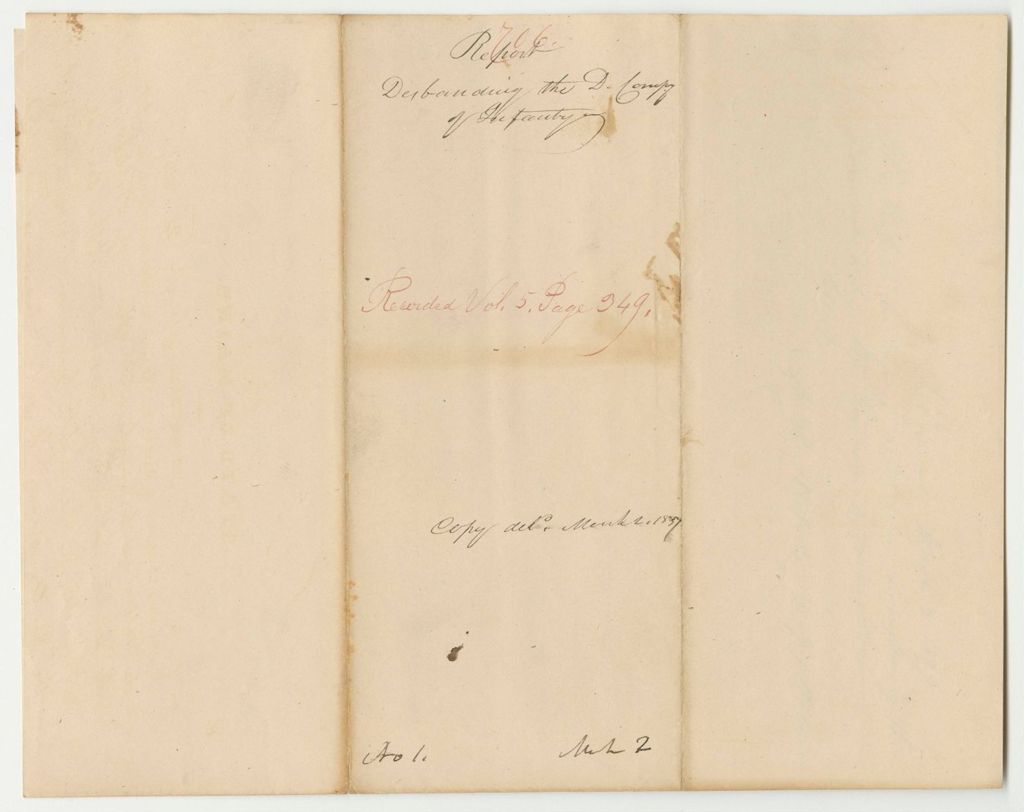 766.
Report
Disbanding the D. Compy
of Infantry
Recorded Vol. 5. Page 349.
Copy deld. March 2. 1837
No 1.
Mch 2